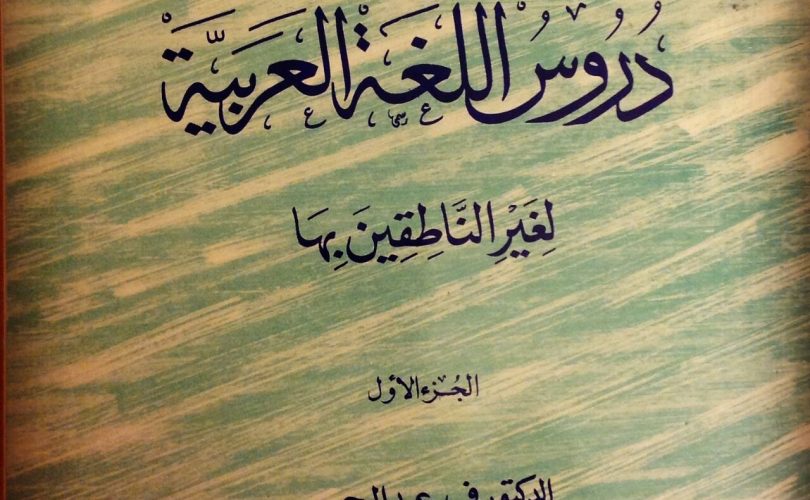 دُرُوسُ اللُّغَةِ العَرَبِيَّة
لِغَيْرِ النَّاطِقِينَ بِهَا
الجُزء الأول
الدكتور ف.